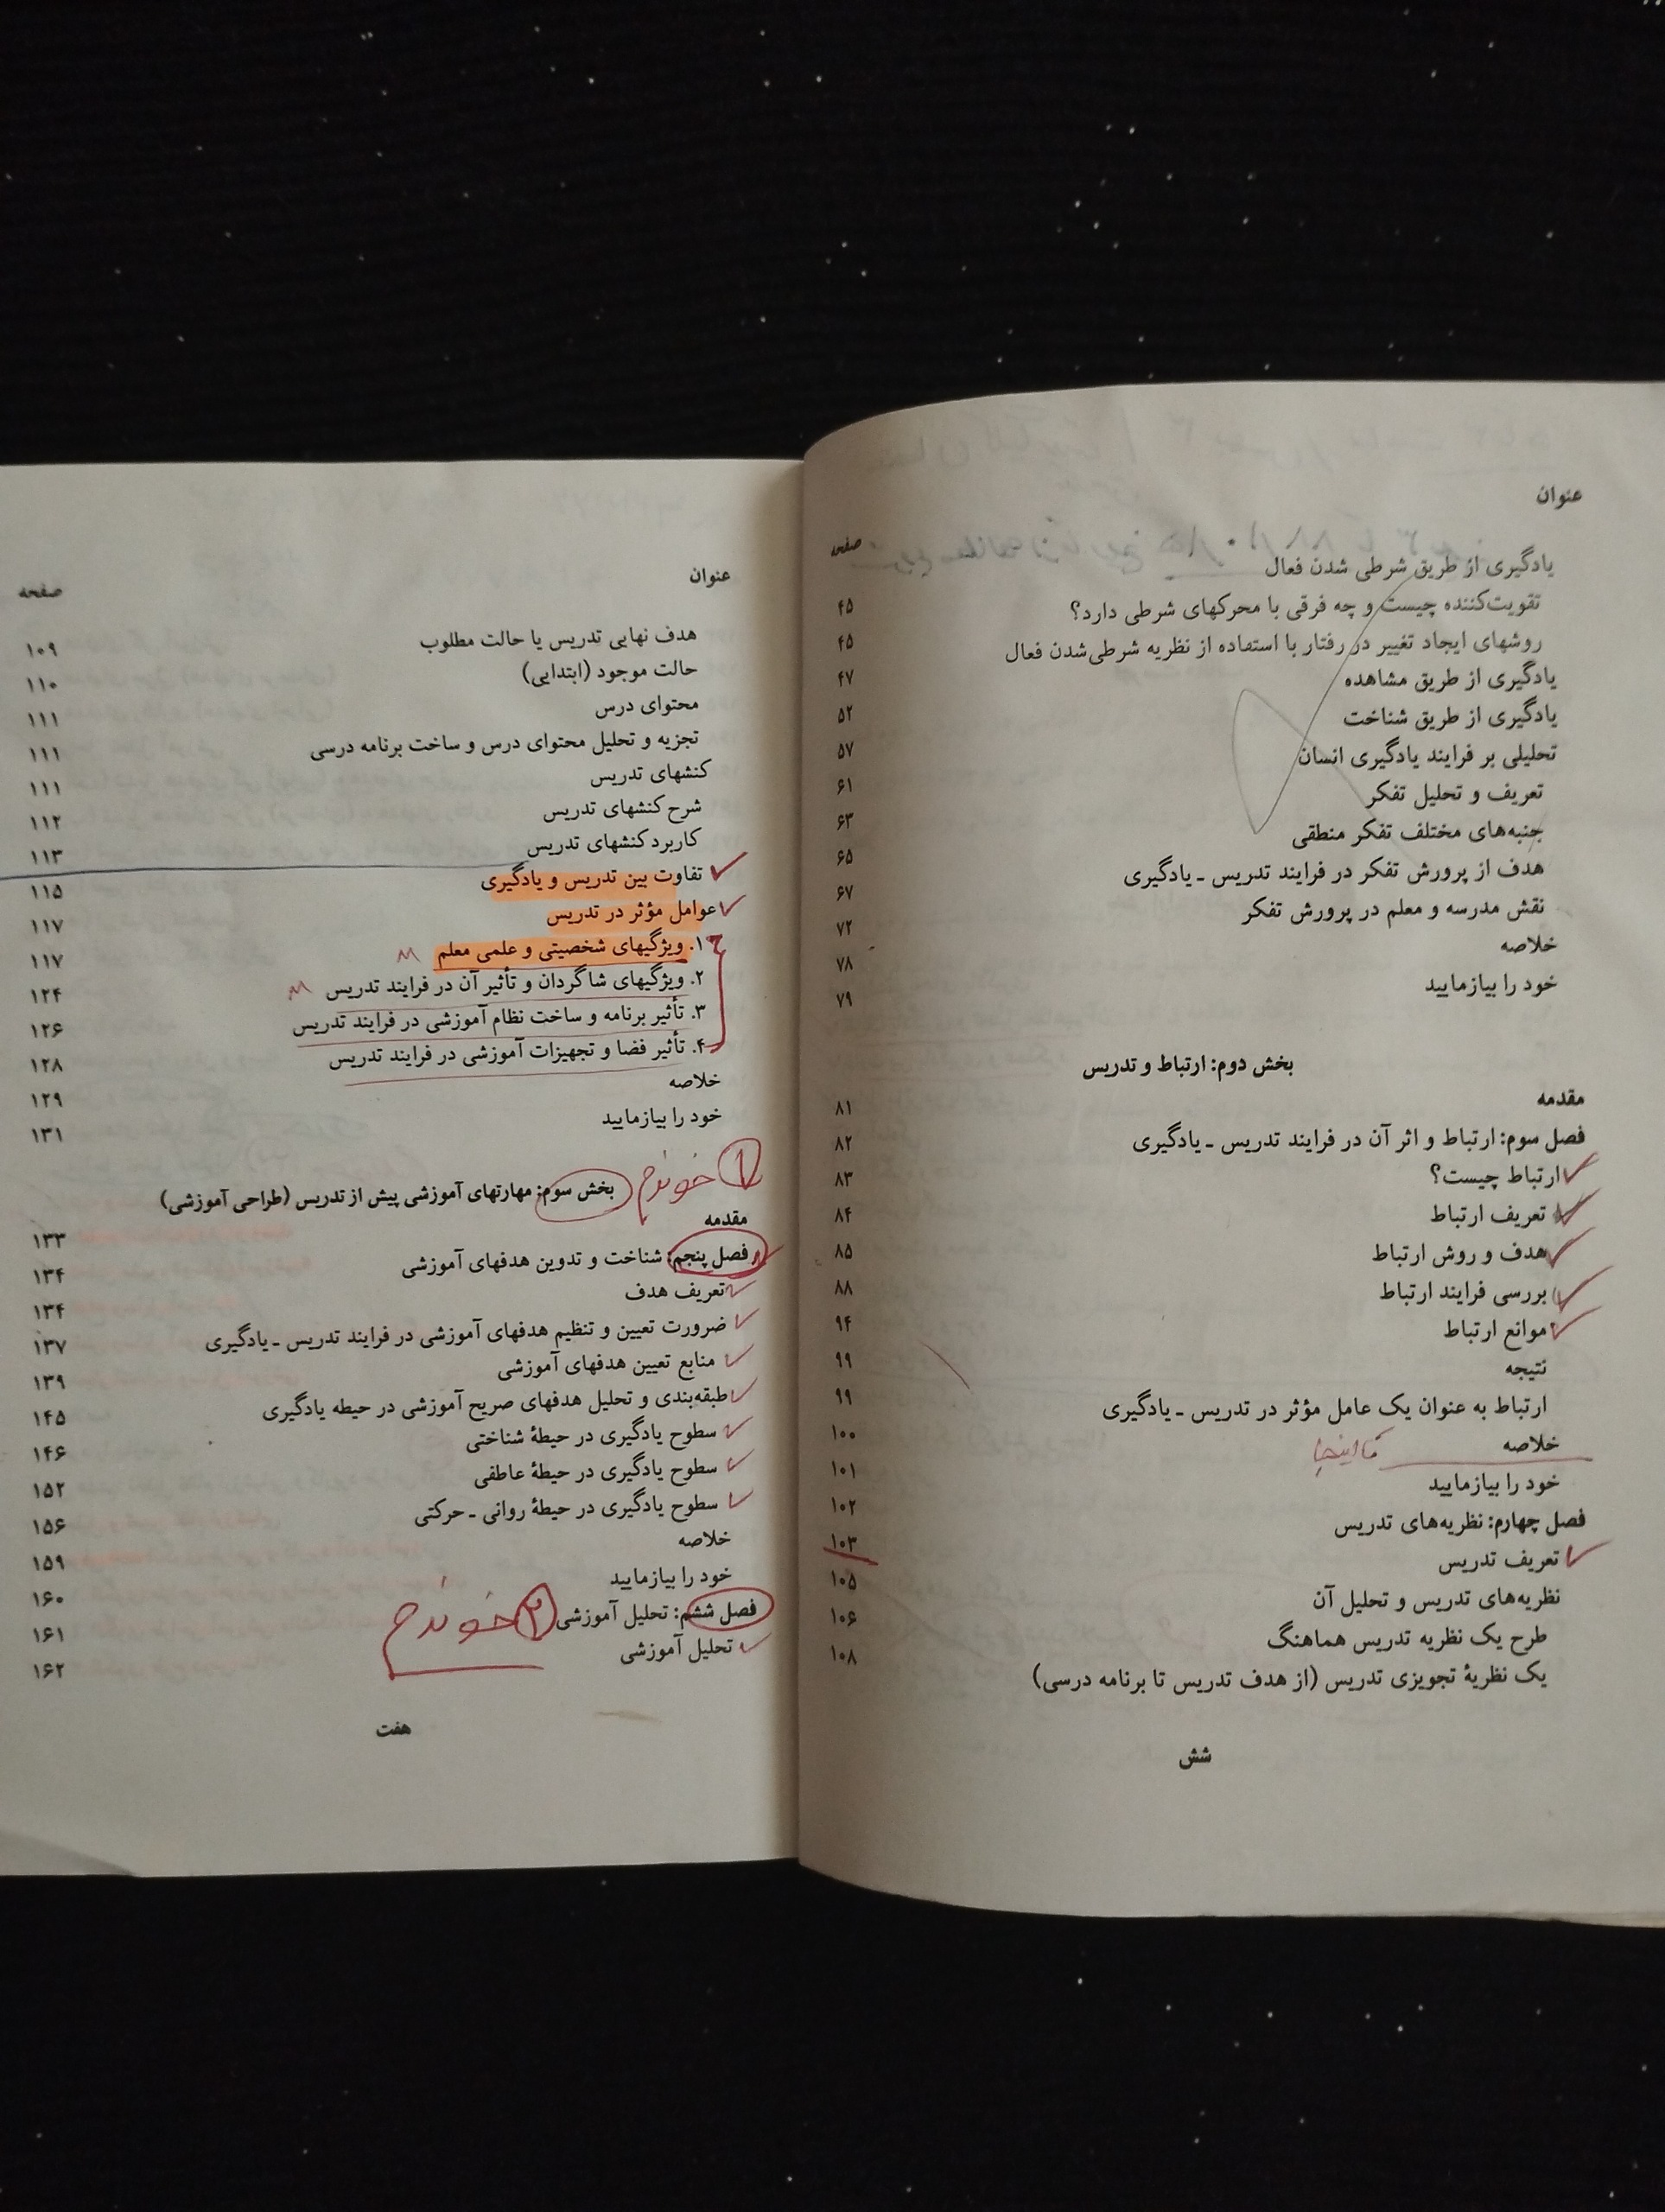 عنوان صفحه
یادگیری از طریق شرطی شدن فعال ۴۵
تقویت‌کننده چیست و چه فرقی با محرکهای شرطی دارد؟ ۴۵
روشهای ایجاد تغییر در رفتار با استفاده از نظریه شرطی‌شدن فعال ۴۷
یادگیری از طریق مشاهده ۵۲
یادگیری از طریق شناخت ۵۷
تحلیلی بر فرایند یادگیری انسان ۶۱
تعریف و تحلیل تفکر ۶۳
جنبه‌های مختلف تفکر منطقی ۶۵
هدف از پرورش تفکر در فرایند تدریس ـ یادگیری ۶۷
نقش مدرسه و معلم در پرورش تفکر ۷۲
خلاصه ۷۸
خود را بیازمایید ۷۹
بخش دوم: ارتباط و تدریس
مقدمه ۸۱
فصل سوم: ارتباط و اثر آن در فرایند تدریس ـ یادگیری ۸۲
ارتباط چیست؟ ۸۳
تعریف ارتباط ۸۴
هدف و روش ارتباط ۸۵
بررسی فرایند ارتباط ۸۸
موانع ارتباط ۹۴
نتیجه ۹۹
ارتباط به عنوان یک عامل مؤثر در تدریس ـ یادگیری ۹۹
خلاصه تا اینجا ۱۰۰
خود را بیازمایید ۱۰۱
فصل چهارم: نظریه‌های تدریس ۱۰۲
تعریف تدریس ۱۰۳
نظریه‌های تدریس و تحلیل آن ۱۰۵
طرح یک نظریه تدریس هماهنگ ۱۰۶
یک نظریهٔ تجویزی تدریس (از هدف تدریس تا برنامه درسی) ۱۰۸
شش
عنوان صفحه
هدف نهایی تدریس یا حالت مطلوب ۱۰۹
حالت موجود (ابتدایی) ۱۱۰
محتوای درس ۱۱۱
تجزیه و تحلیل محتوای درس و ساخت برنامه درسی ۱۱۱
کنشهای تدریس ۱۱۱
شرح کنشهای تدریس ۱۱۲
کاربرد کنشهای تدریس ۱۱۳
تفاوت بین تدریس و یادگیری ۱۱۵
عوامل مؤثر در تدریس ۱۱۷
۱. ویژگیهای شخصیتی و علمی معلم ۱۱۷
۲. ویژگیهای شاگردان و تأثیر آن در فرایند تدریس ۱۲۴
۳. تأثیر برنامه و ساخت نظام آموزشی در فرایند تدریس ۱۲۶
۴. تأثیر فضا و تجهیزات آموزشی در فرایند تدریس ۱۲۸
خلاصه ۱۲۹
خود را بیازمایید ۱۳۱
۱ خوندم
بخش سوم: مهارتهای آموزشی پیش از تدریس (طراحی آموزشی)
مقدمه ۱۳۳
فصل پنجم: شناخت و تدوین هدفهای آموزشی ۱۳۴
تعریف هدف ۱۳۴
ضرورت تعیین و تنظیم هدفهای آموزشی در فرایند تدریس ـ یادگیری ۱۳۷
منابع تعیین هدفهای آموزشی ۱۳۹
طبقه‌بندی و تحلیل هدفهای صریح آموزشی در حیطه یادگیری ۱۴۵
سطوح یادگیری در حیطهٔ شناختی ۱۴۶
سطوح یادگیری در حیطهٔ عاطفی ۱۵۲
سطوح یادگیری در حیطهٔ روانی ـ حرکتی ۱۵۶
خلاصه ۱۵۹
خود را بیازمایید ۱۶۰
فصل ششم: تحلیل آموزشی ۲ خوندم ۱۶۱
تحلیل آموزشی ۱۶۲
هفت